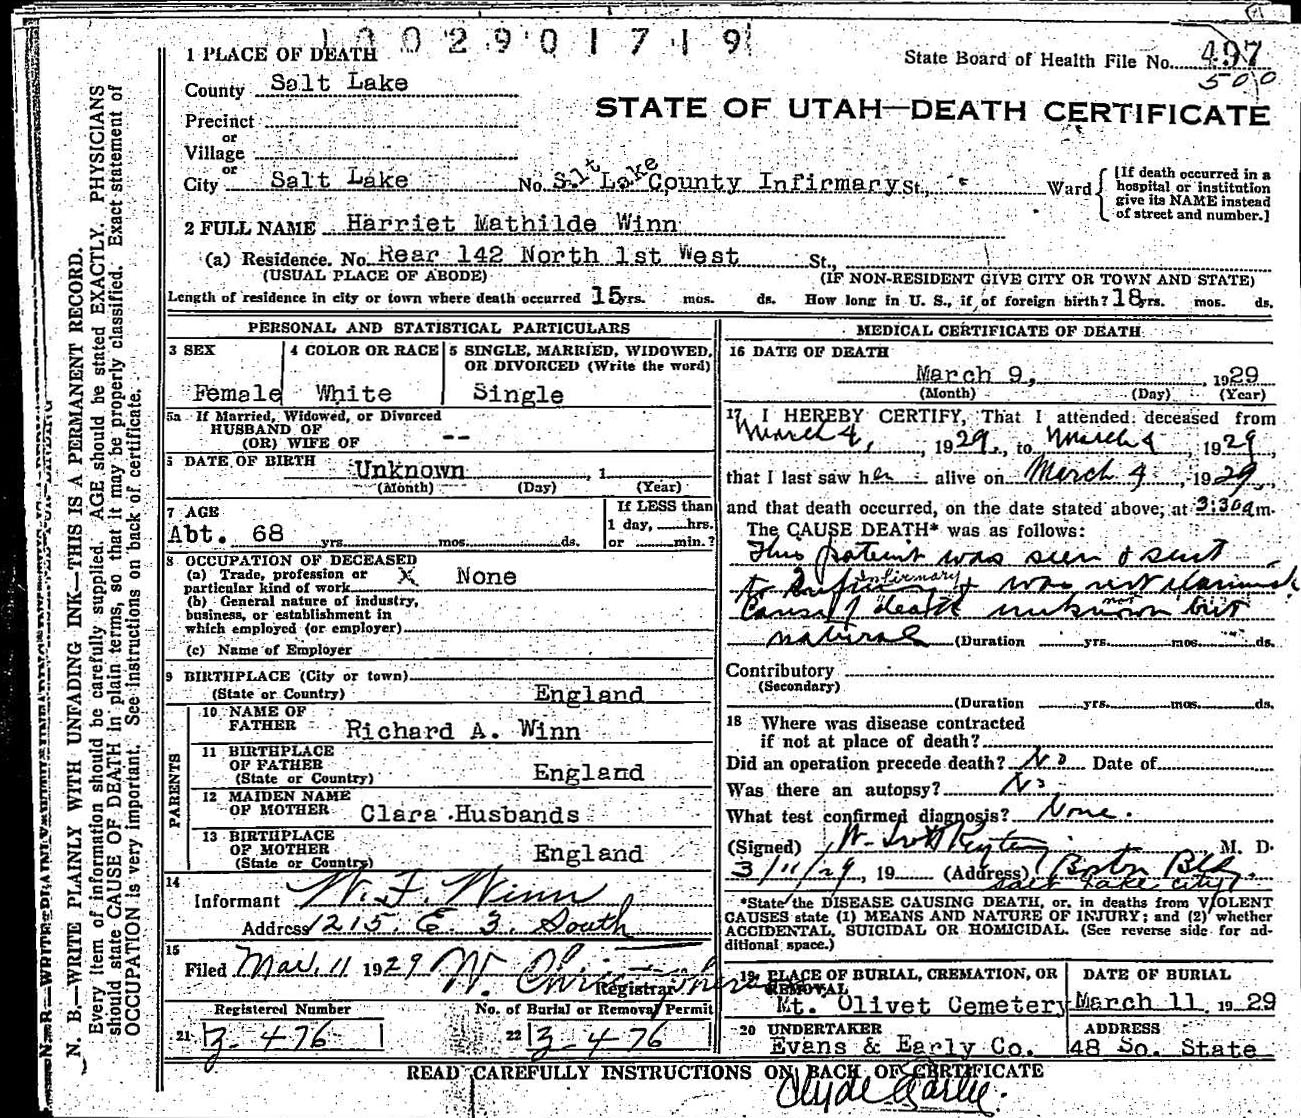 1002901719
1 PLACE OF DEATH
State Board of Health File No. 497
500
County Salt Lake
STATE OF UTAH—DEATH CERTIFICATE
Precinct
or
Village
or
City Salt Lake No. Salt Lake County Infirmary St., Ward
[If death occurred in a
hospital or institution
give its NAME instead
of street and number.]
2 FULL NAME Harriet Mathilde Winn
(a) Residence. No. Rear 142 North 1st West St.,
(USUAL PLACE OF ABODE) (IF NON-RESIDENT GIVE CITY OR TOWN AND STATE)
Length of residence in city or town where death occurred 15 yrs. mos. ds. How long in U. S., if of foreign birth? 18 yrs. mos. ds.
PERSONAL AND STATISTICAL PARTICULARS
3 SEX
Female
4 COLOR OR RACE
White
5 SINGLE, MARRIED, WIDOWED,
OR DIVORCED (Write the word)
Single
5a If Married, Widowed, or Divorced
HUSBAND OF
(OR) WIFE OF --
DATE OF BIRTH Unknown , 1
(Month) (Day) (Year)
7 AGE
Abt. 68 yrs. mos. ds.
If LESS than
1 day, hrs.
or min.?
8 OCCUPATION OF DECEASED
(a) Trade, profession or
particular kind of work X None
(b) General nature of industry,
business, or establishment in
which employed (or employer)
(c) Name of Employer
9 BIRTHPLACE (City or town)
(State or Country) England
PARENTS
10 NAME OF
FATHER Richard A. Winn
11 BIRTHPLACE
OF FATHER
(State or Country) England
12 MAIDEN NAME
OF MOTHER Clara Husbands
13 BIRTHPLACE
OF MOTHER
(State or Country) England
14
Informant W. F. Winn
Address 1215. E. 3. South
15
Filed Mar. 11 1929 W.
Registrar
Registered Number
21 3-476
No. of Burial or Removal Permit
22 3-476
MEDICAL CERTIFICATE OF DEATH
16 DATE OF DEATH
March 9, , 1929
(Month) (Day) (Year)
17 I HEREBY CERTIFY, That I attended deceased from
March 4, , 1929, to March 4 , 1929,
that I last saw her alive on March 4 , 1929,
and that death occurred, on the date stated above, at 3:30am.
The CAUSE DEATH* was as follows:
This patient was seen & sent
to Infirmary & was not
Cause of death unknown but
natural (Duration yrs. mos. ds.
Contributory
(Secondary)
(Duration yrs. mos. ds.
18 Where was disease contracted
if not at place of death?
Did an operation precede death? No Date of
Was there an autopsy? No
What test confirmed diagnosis? None.
(Signed) W. M. D.
3/11/29, 19 (Address) Boston Bldg.
Salt Lake City
*State the DISEASE CAUSING DEATH, or, in deaths from VIOLENT
CAUSES state (1) MEANS AND NATURE OF INJURY; and (2) whether
ACCIDENTAL, SUICIDAL OR HOMICIDAL. (See reverse side for ad-
ditional space.)
19 PLACE OF BURIAL, CREMATION, OR
REMOVAL
Mt. Olivet Cemetery
DATE OF BURIAL
March 11, 1929
20 UNDERTAKER
Evans & Early Co.
ADDRESS
48 So. State
READ CAREFULLY INSTRUCTIONS ON BACK OF CERTIFICATE
Clyde Earlie.
N. B.—WRITE PLAINLY WITH UNFADING INK—THIS IS A PERMANENT RECORD.
Every item of information should be carefully supplied. AGE should be stated EXACTLY. PHYSICIANS
should state CAUSE OF DEATH in plain terms, so that it may be properly classified. Exact statement of
OCCUPATION is very important. See instructions on back of certificate.